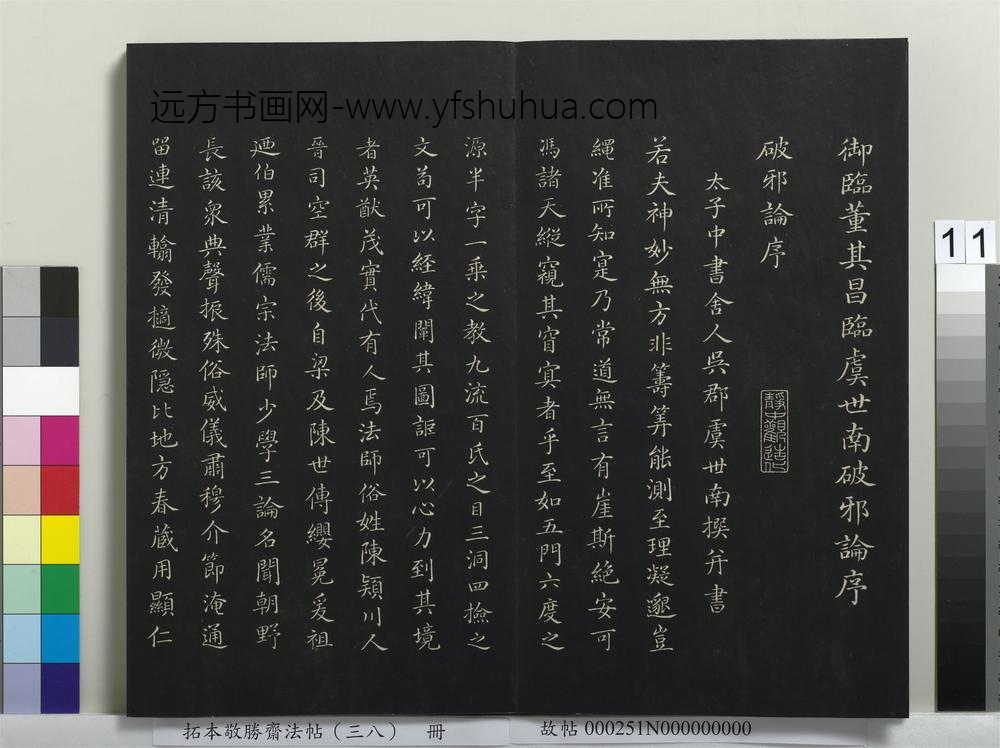 御臨董其昌臨虞世南破邪論序
破邪論序
靜中觀造化
太子中書舍人吳郡虞世南撰并書
若夫神妙無方非籌筭能測至理凝邈豈
繩准所知寔乃常道無言有崖斯絕安可
馮諸天縱窺其窅寞者乎至如五門六度之
源半字一乘之教九流百氏之目三洞四撿之
文苟可以經緯闡其圖詎可以心力到其境
者英猷茂實代有人焉法師俗姓陳潁川人
晉司空群之後自梁及陳世傳纓冕爰祖
迺伯累業儒宗法師少學三論名聞朝野
長該衆典聲振殊俗威儀肅穆介節淹通
留連清翰發擿微隱比地方春藏用顯仁
远方书画网-www.yfshuhua.com
11
拓本敬勝齋法帖（三八） 冊
故帖 000251N000000000